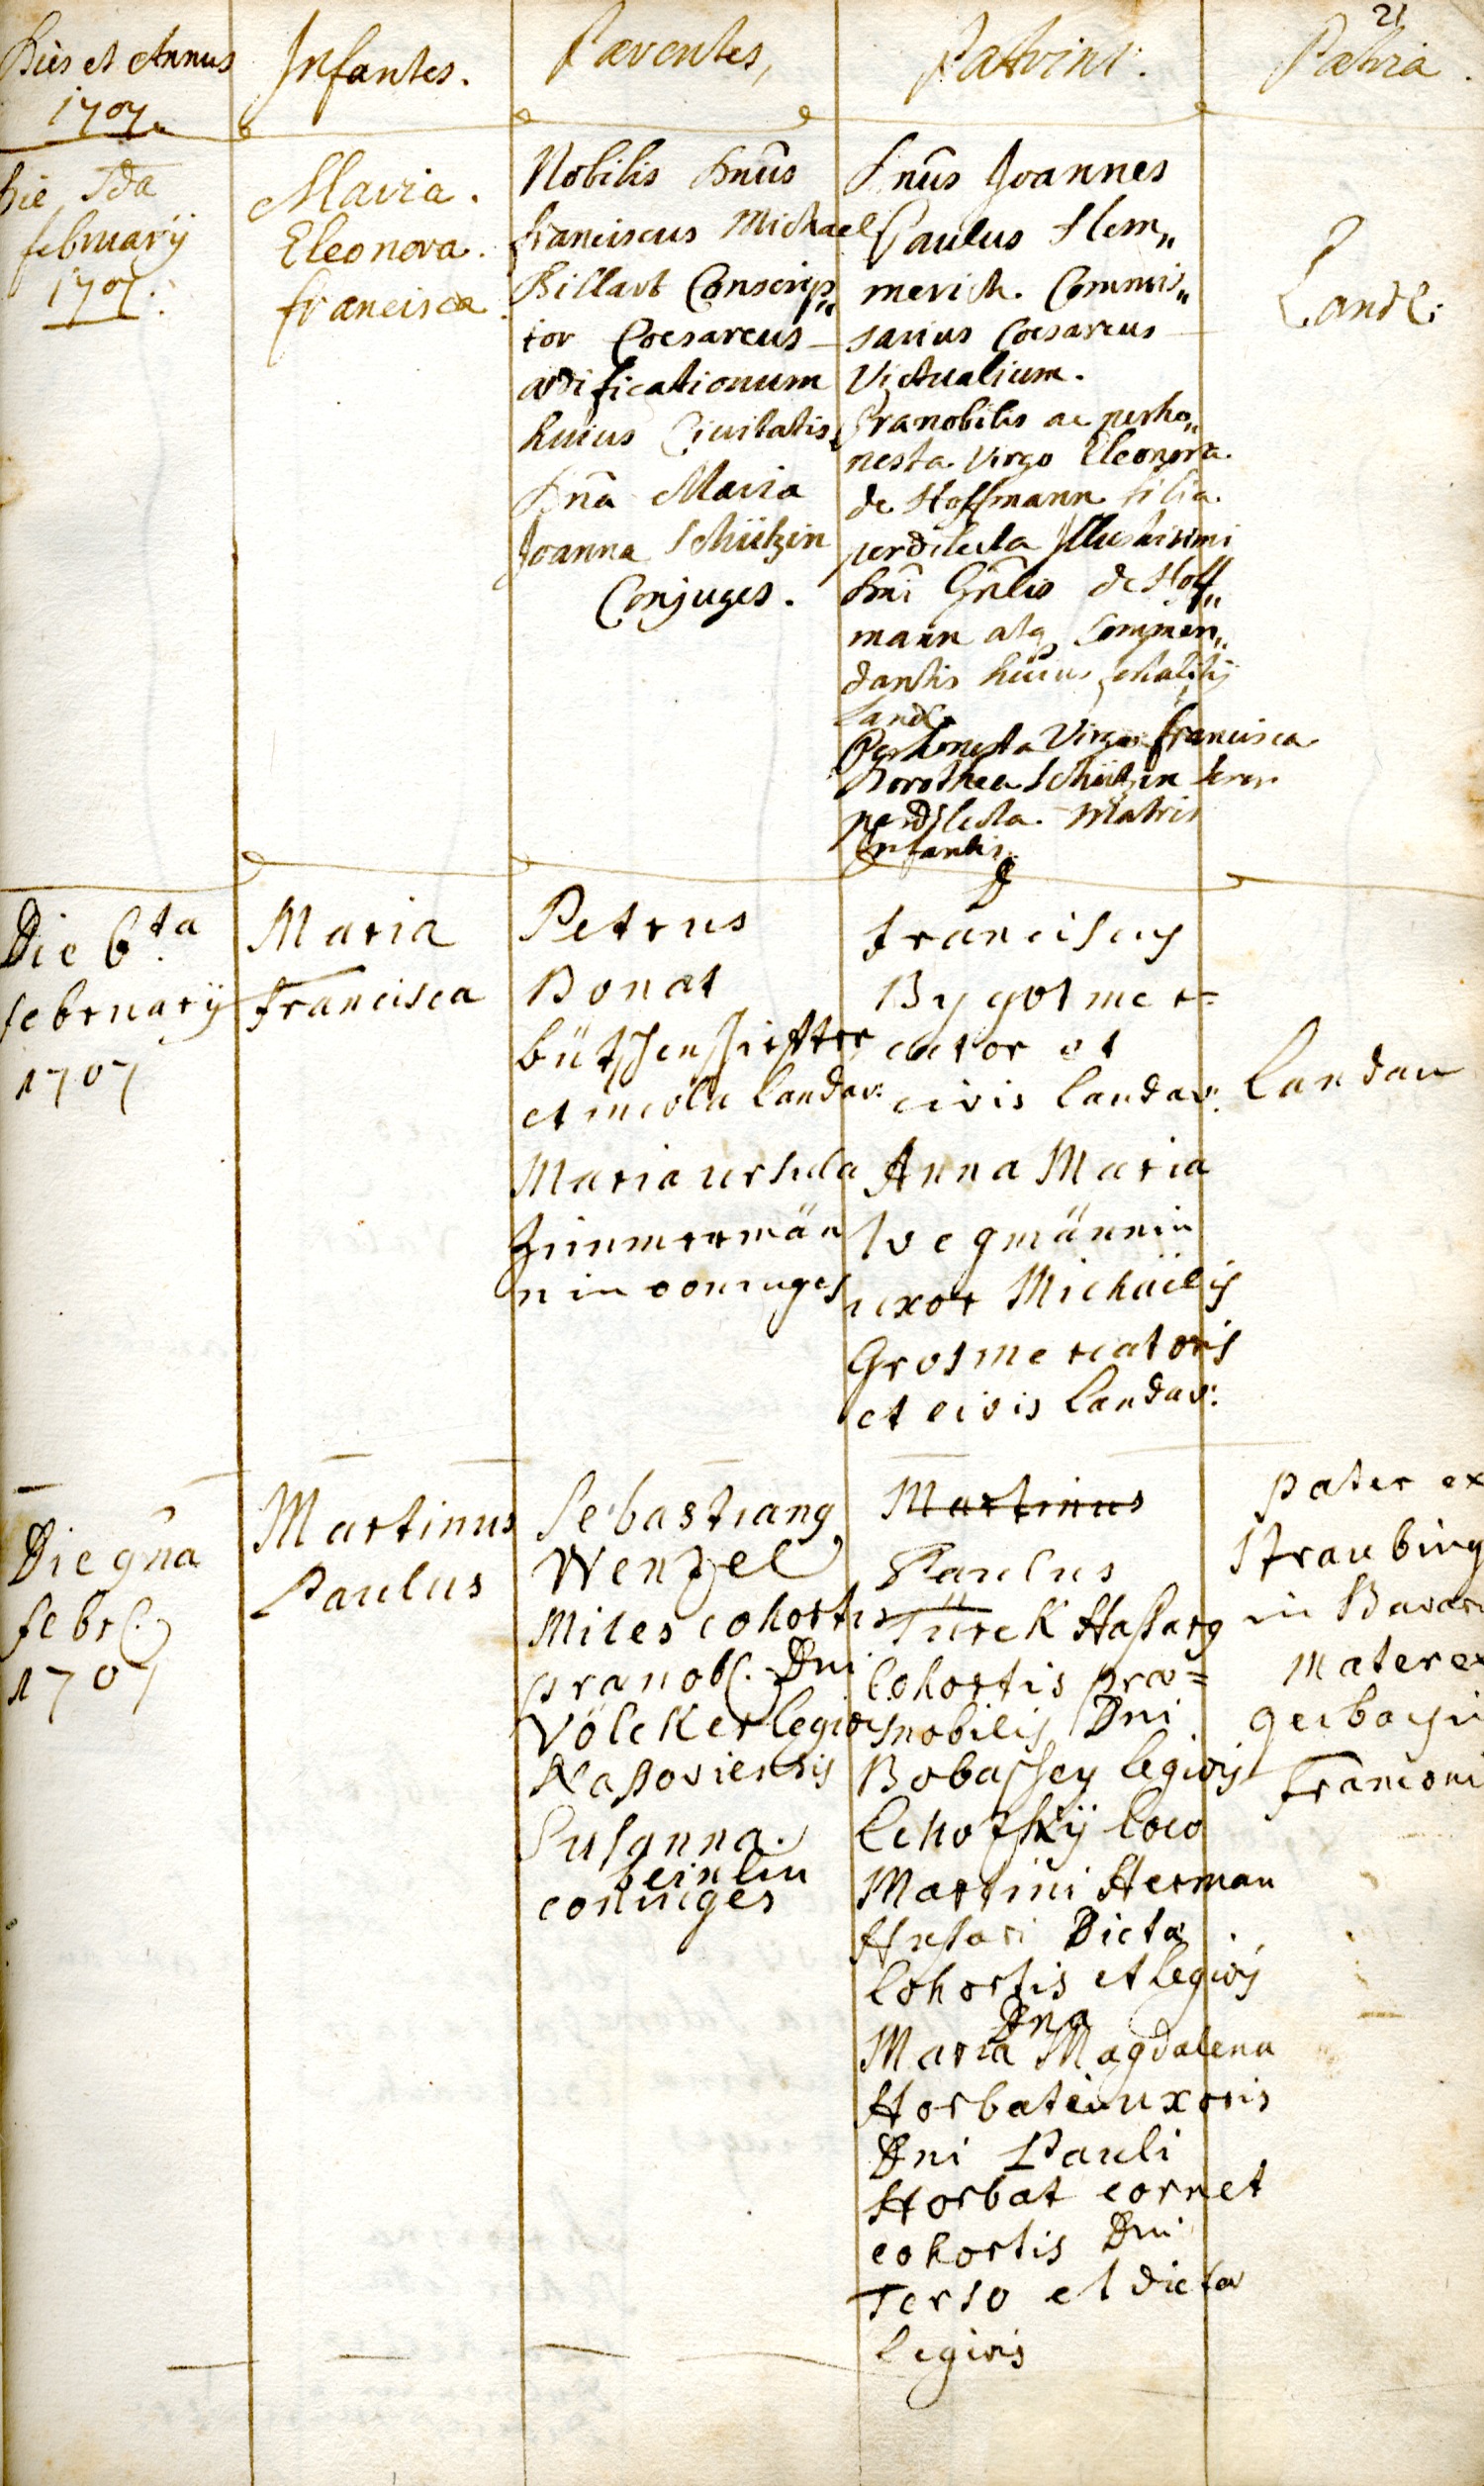 21
Dies et Annus
1707.
Infantes.
Parentes,
Patrini.
Patria.
Die 5da
february
1707.
Maria.
Eleonora.
francisca
Nobilis Dnus
franciscus Michael
Billart Conscrip„
tor Coesareus
ædificationum
huius Civitatis,
Dna Maria
Joanna Schützin
Conjuges.
Dnus Joannes
Paulus Hem„
merich. Commis„
sarius Coesareus
Victualium.
Prænobilis ac perho„
nesta Virgo Eleonora
de Hoffmann filia
perdilecta Illustrissimi
Dni Gnlis de Hoff„
mann atq Commen„
dantis huius
Land.
Perhonesta Virgo francisca
Dorothea Schützin soror
perdilecta Matris
Infantis.
Land:
Die 6ta.
februarÿ
1707
Maria
Francisca
Petrus
Bonat
et incola Landav:
Maria ursula
Zimmermän
nin coniuges
Franciscus
Bygot mer=
cator et
civis Landav:
Anna Maria
Wegmännin
uxor Michäelis
Gros mercatoris
et civis Landav:
Landau
Die 9na
febr.
1707
Martinus
Paulus
Sebastianus
Wenzel
Miles cohortis
prænob. Dni
Völcker legionis
Nassoviensis
Susanna.
beinlin
coniuges
Martinus
Paulus
Türck Hassarg
Cohortis præ=
nobilis Dni
Bobassey legiois
Lehotskÿ loco
Martini Herman
Husari Dictæ
Cohortis et legiois
Dna
Maria Magdalena
Horbatin uxoris
Dni Pauli
Horbat cornet
cohortis Dni
Terso et dictæ
legiois
Pater ex
Straubing
in Bavari
Mater ex
Franconi